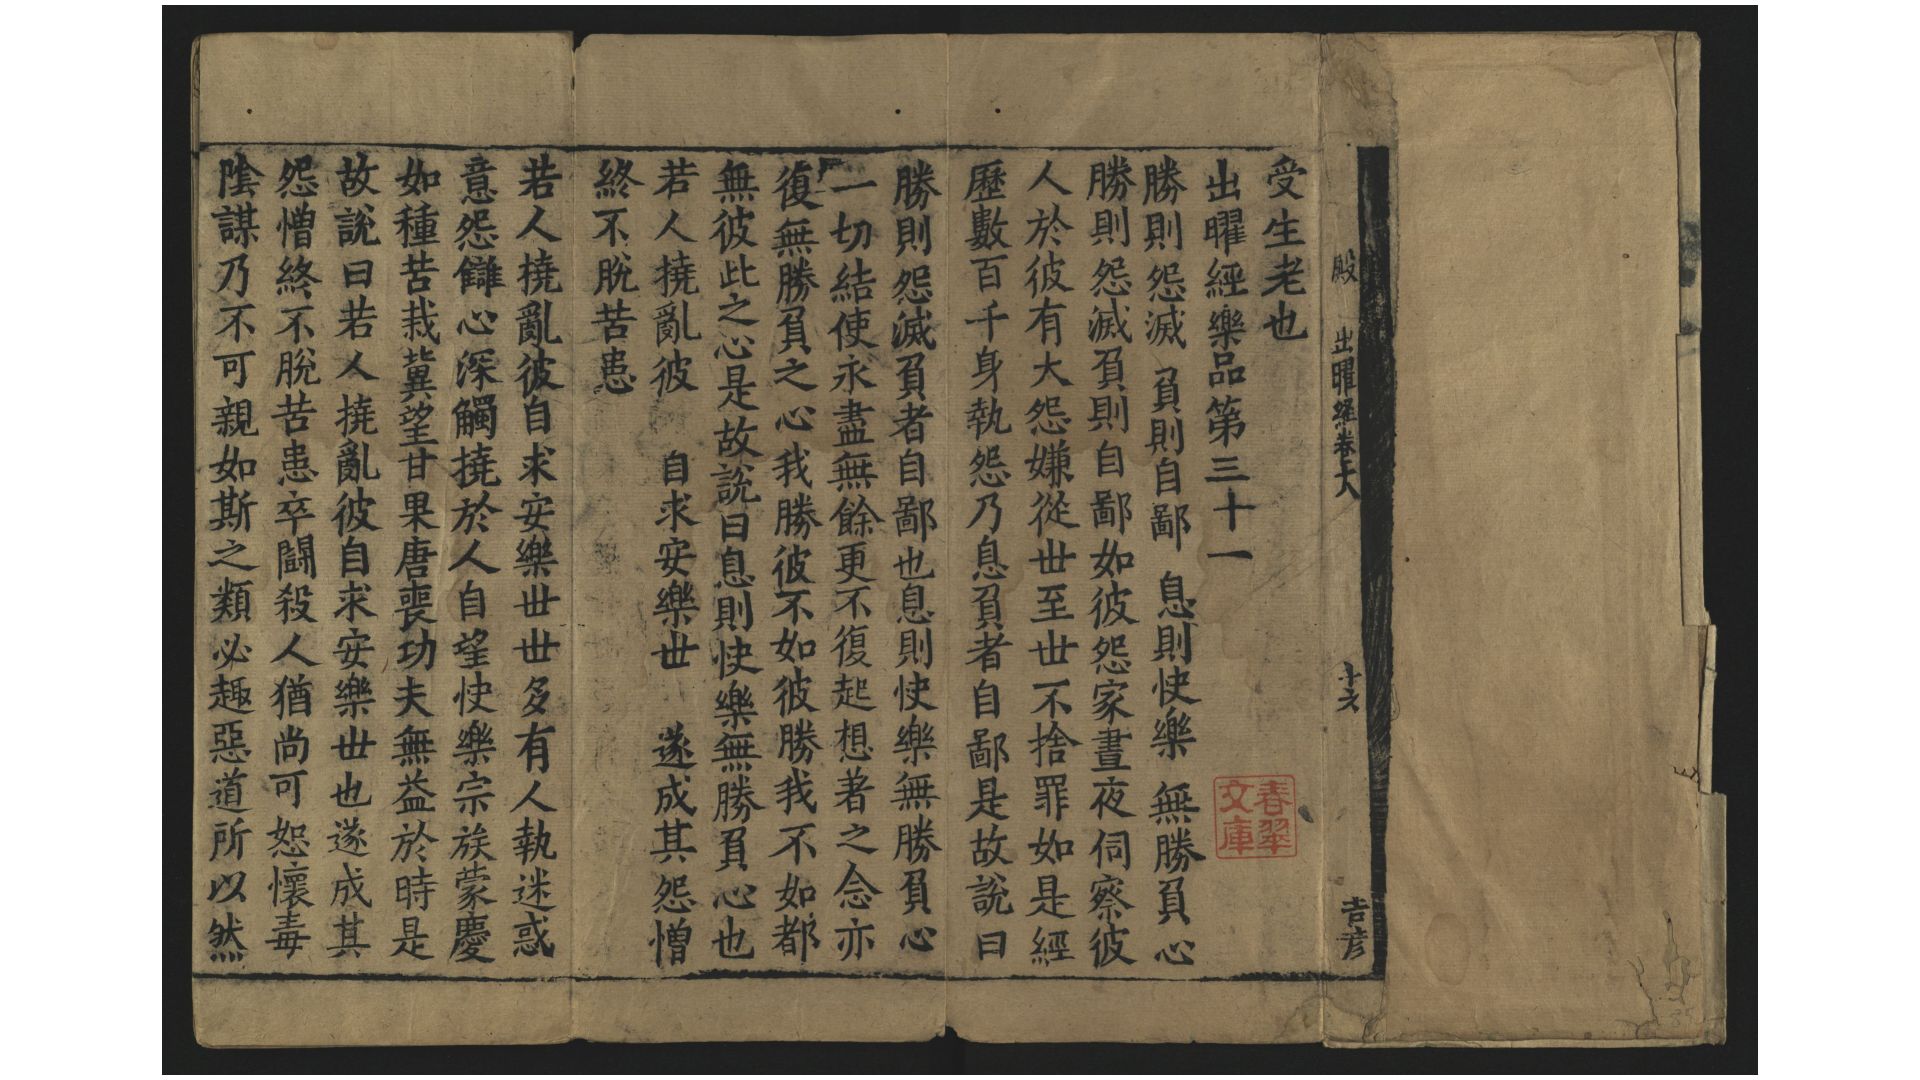 殿 出曜經卷大 十六 吉彦
受生老也
出曜經樂品第三十一
勝則怨滅 負則自鄙 息則快樂 無勝負心
勝則怨滅負則自鄙如彼怨家晝夜伺察彼
人於彼有大怨嫌從世至世不捨罪如是經
歷數百千身執怨乃息負者自鄙是故說曰
勝則怨滅負者自鄙也息則快樂無勝負心
一切結使永盡無餘更不復起想著之念亦
復無勝負之心我勝彼不如彼勝我不如都
無彼此之心是故說曰息則快樂無勝負心也
若人撓亂彼 自求安樂世 遂成其怨憎
終不脫苦患
若人撓亂彼自求安樂世世多有人執迷惑
意怨讎心深觸撓於人自望快樂宗族蒙慶
如種苦栽冀望甘果唐喪功夫無益於時是
故說曰若人撓亂彼自求安樂世也遂成其
怨憎終不脫苦患卒鬪殺人猶尚可恕懷毒
陰謀乃不可親如斯之類必趣惡道所以然
春翠
文庫